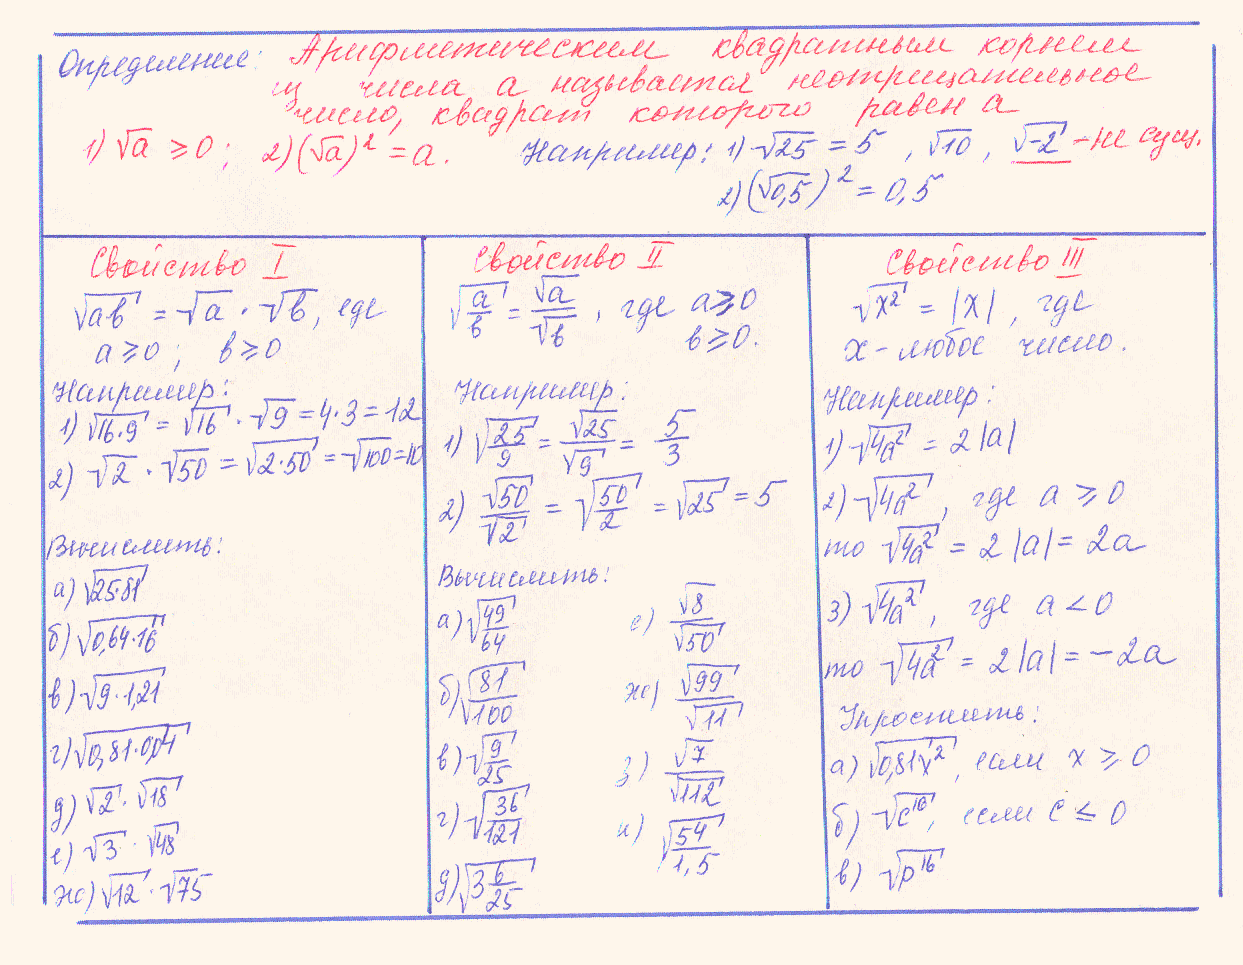 Определение: Арифметическим квадратным корнем
из числа a называется неотрицательное
число, квадрат которого равен a
1) √a ≥ 0; 2) (√a)² = a. Например: 1) √25 = 5, √10, √-2 - не сущ.
2) (√0,5)² = 0,5
Свойство I
√ab = √a · √b, где
a ≥ 0; b ≥ 0
Например:
1) √16·9 = √16 · √9 = 4·3 = 12
2) √2 · √50 = √2·50 = √100 = 10
Вычислить:
а) √25·81
б) √0,64·16
в) √9·1,21
г) √0,81·0,04
д) √2 · √18
е) √3 · √48
ж) √12 · √75
Свойство II
√a/b = √a/√b, где a ≥ 0
b ≥ 0.
Например:
1) √25/9 = √25/√9 = 5/3
2) √50/√2 = √50/2 = √25 = 5
Вычислить:
а) √49/64
б) √81/100
в) √9/25
г) √36/121
д) √3 6/25
е) √8/√50
ж) √99/√11
з) √7/√112
и) √54/1,5
Свойство III
√x² = |x|, где
x - любое число.
Например:
1) √4a² = 2|a|
2) √4a², где a ≥ 0
то √4a² = 2|a| = 2a
3) √4a², где a < 0
то √4a² = 2|a| = -2a
Упростить:
а) √0,81x², если x ≥ 0
б) √c¹⁰, если c ≤ 0
в) √p¹⁶